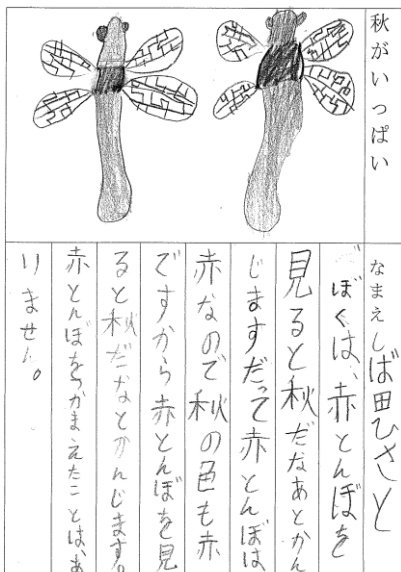 秋がいっぱい
なまえしば田ひさと
ぼくは、赤とんぼを
見ると秋だなあとかん
じますだって赤とんぼは
赤なので秋の色も赤
ですから赤とんぼを見
ると秋だなとかんじます。
赤とんぼをつかまえたことは、あ
りません。